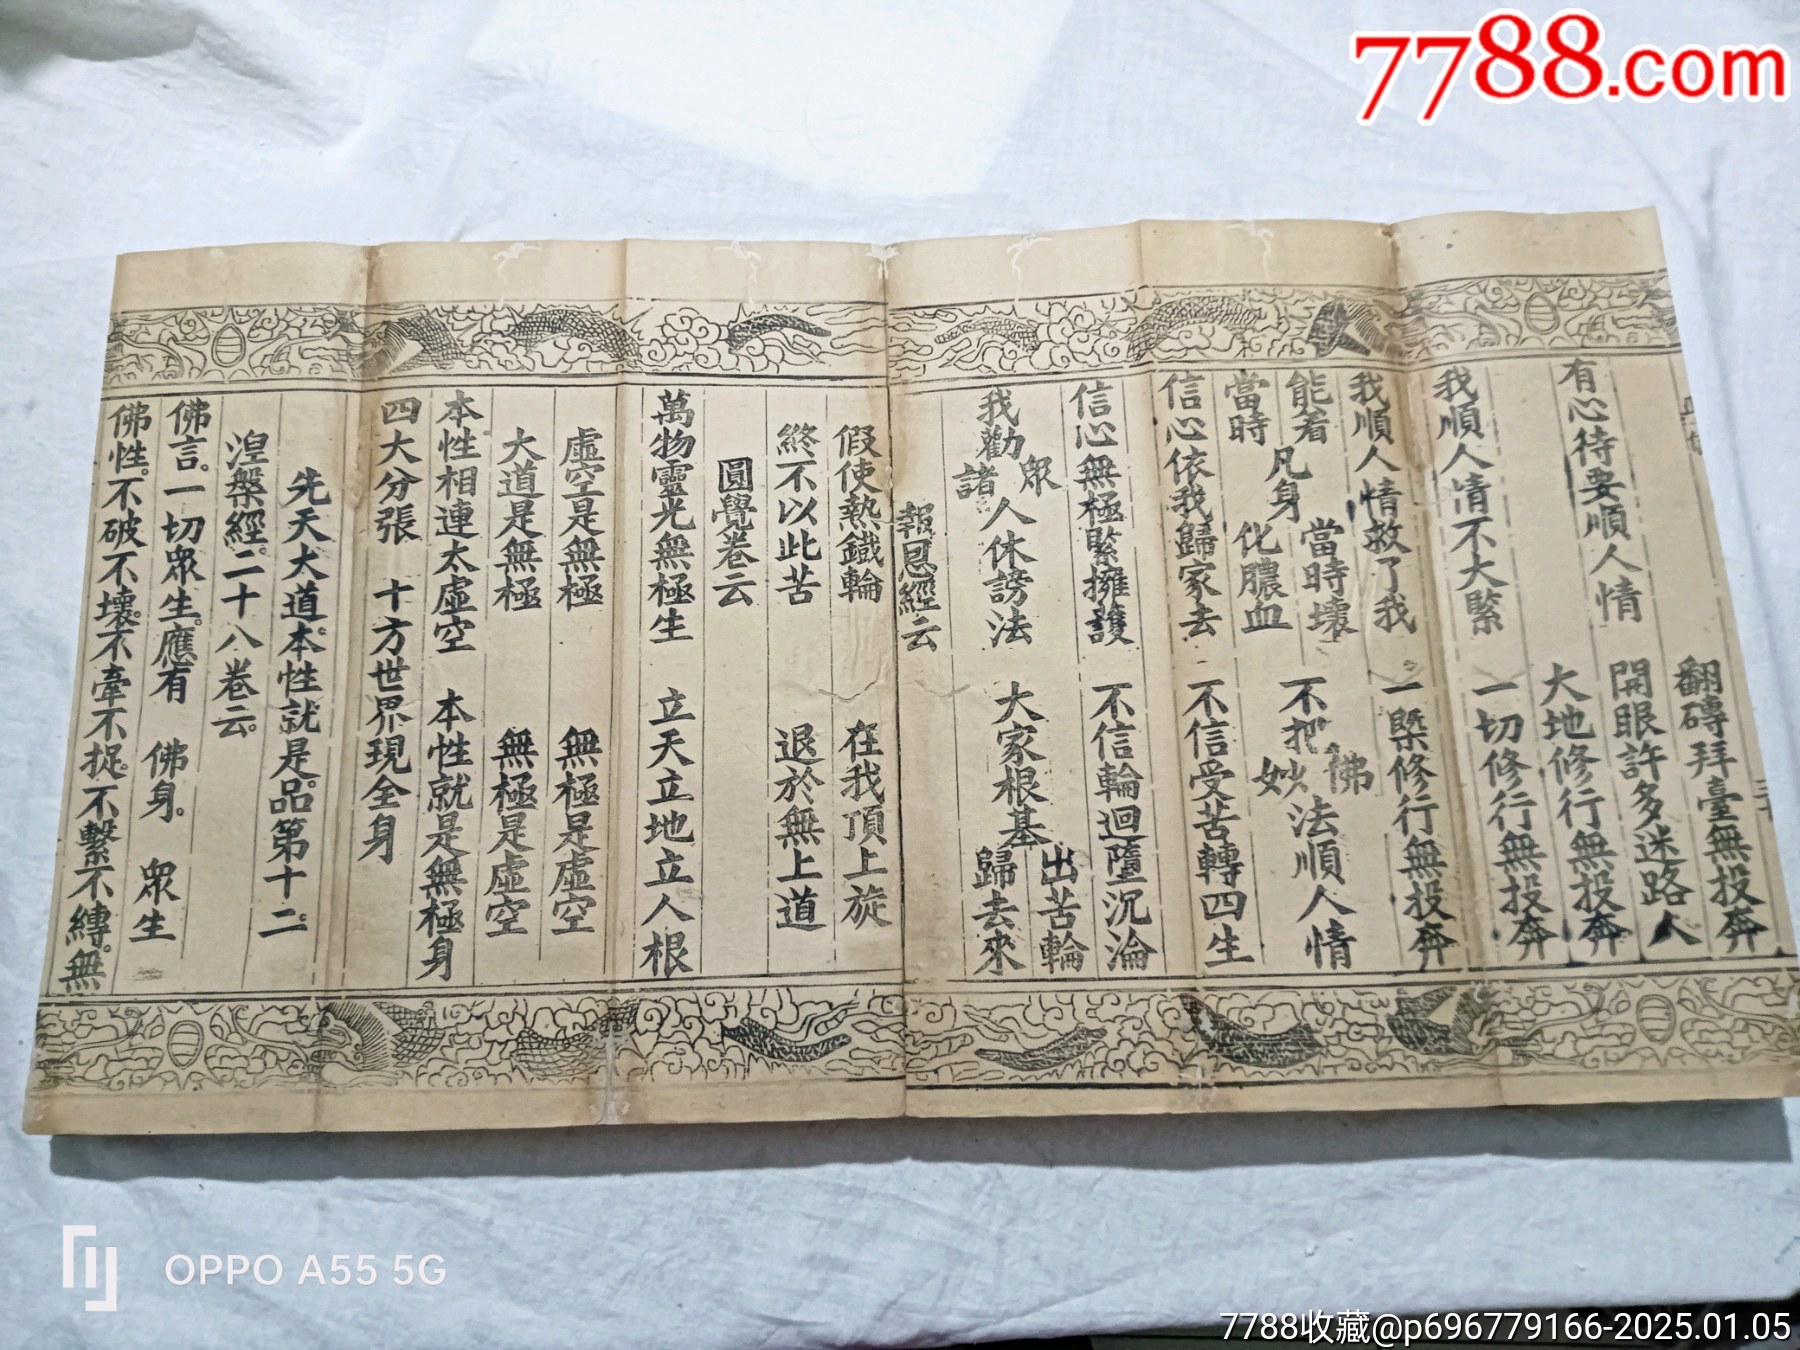 7788.com
翻磚拜臺無投奔
有心待要順人情　開眼許多迷路人
大地修行無投奔
我順人情不大緊　一切修行無投奔
我順人情救了我　一槩修行無投奔
能着 當時 凡身 當時壞 化膿血　不把 佛 妙 法順人情
信心依我歸家去　不信受苦轉四生
信心無極緊擁護　不信輪迴墮沉淪
我勸 眾 諸 人休謗法　大家根基 出苦輪 歸去來
報恩經云
假使熱鐵輪　在我頂上旋
終不以此苦　退於無上道
圓覺卷云
萬物靈光無極生　立天立地立人根
虛空是無極　無極是虛空
大道是無極　無極是虛空
本性相連太虛空　本性就是無極身
四大分張　十方世界現全身
先天大道。本性就是。品第十二。
湼槃經。二十八卷云。
佛言。一切眾生。應有　佛身。　眾生
佛性。不破不壞。不牽不捉。不繫不縛。無
OPPO A55 5G
7788收藏@p696779166-2025.01.05